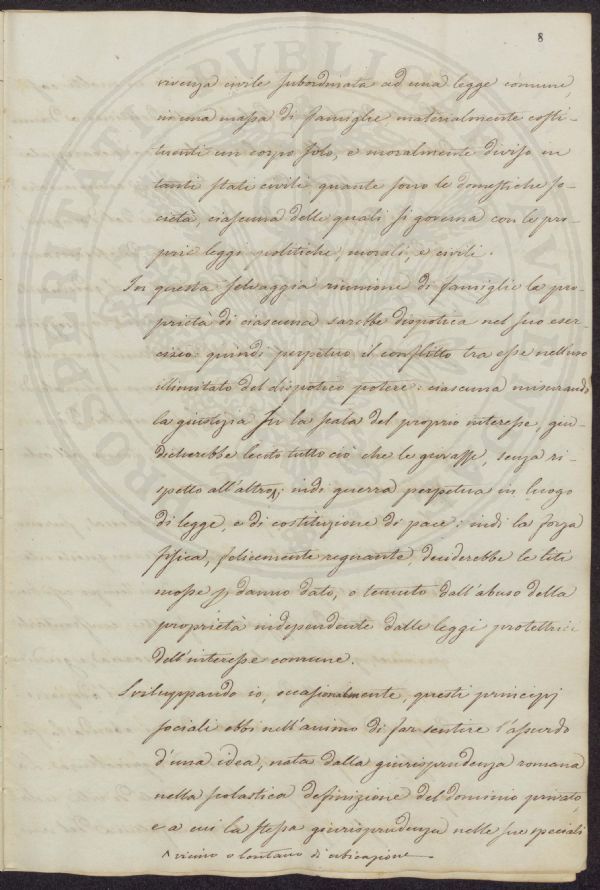 8
vivenza civile subordinata ad una legge comune,
in una massa di famiglie materialmente costi-
tuenti un corpo solo, e moralmente diviso in
tanti stati civili quante sono le domestiche so-
cietà, ciascuna delle quali si governa con le pro-
prie leggi politiche, morali, e civili.
In questa selvaggia riunione di famiglie la pro-
prietà di ciascuna sarebbe dispotica nel suo eser-
cizio: quindi perpetuo il conflitto tra esse nell'uso
illimitato del dispotico potere: ciascuna misurando
la giustizia su la scala del proprio interesse, giu-
dicherebbe lecito tutto ciò che le giovasse, senza ri-
spetto all'altro^; indi guerra perpetua in luogo
di legge, e di costituzione di pace: indi la forza
fisica, felicemente regnante, deciderebbe le liti
mosse p danno dato, o temuto dall'abuso della
proprietà indipendente dalle leggi protettrici
dell'interesse comune.
Sviluppando io, occasionalmente, questi principj
sociali ebbi nell'animo di far sentire l'assurdo
d'una idea, nata dalla giurisprudenza romana
nella scolastica definizione del dominio privato,
e a cui la stessa giurisprudenza nelle sue speciali
^ vicino o lontano di ubicazione
PROSPERITATI PVBLICAE AVGENDAE